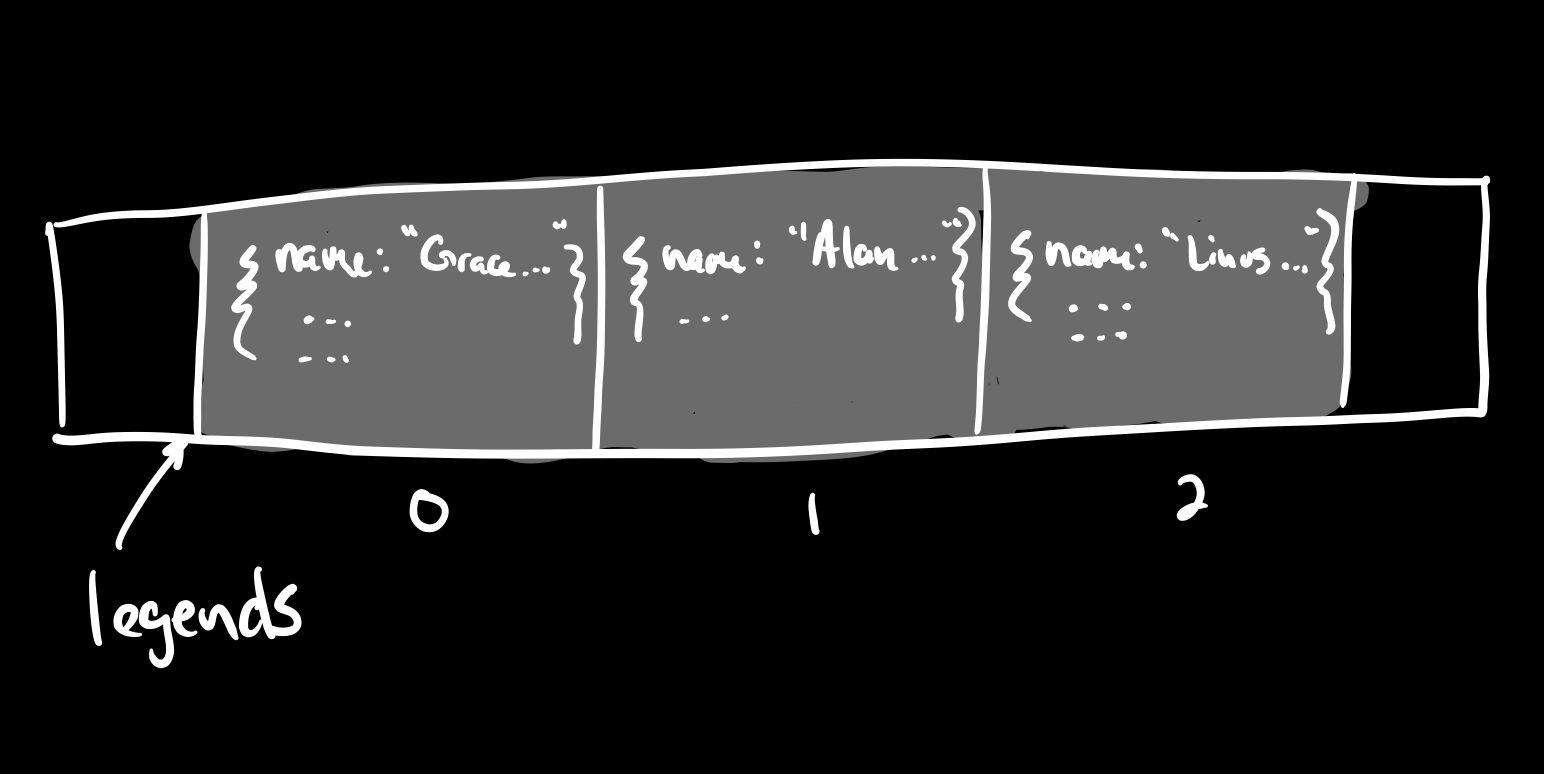 { name: "Grace..." } { name: "Alan..." } { name: "Linus..." }
... ... ...
... ...
0 1 2
legends